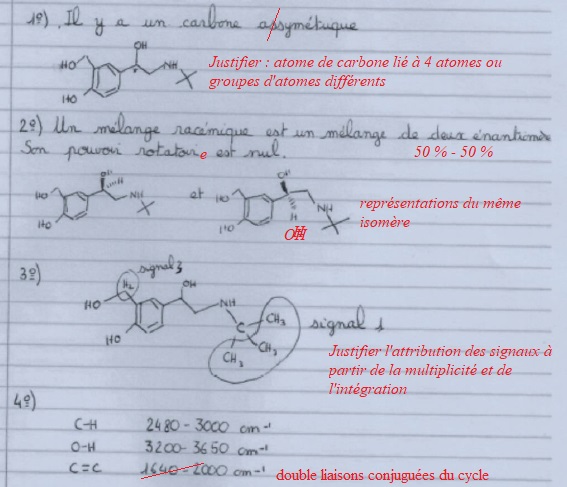 1º) Il y a un carbone assymétrique
OH
HO
NH
HO
Justifier : atome de carbone lié à 4 atomes ou
groupes d'atomes différents
2º) Un mélange racémique est un mélange de deux énantiomère
Son pouvoir rotatoire est nul.
50 % - 50 %
OH
H
HO
NH
HO
et
OH
H
HO
NH
HO
OH
H
représentations du même
isomère
3º)
signal 3
H2
OH
HO
NH
HO
C
CH3
CH3
CH3
signal 1
Justifier l'attribution des signaux à
partir de la multiplicité et de
l'intégration
4º)
C-H 2480 - 3000 cm-1
O-H 3200 - 3650 cm-1
C=C 1640 - 2000 cm-1 double liaisons conjuguées du cycle